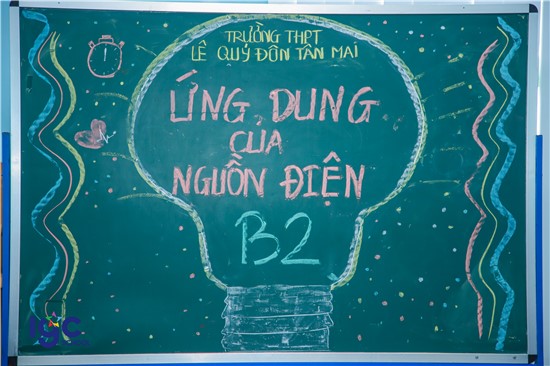 TRƯỜNG THPT
LÊ QUÝ ĐÔN TÂN MAI
ỨNG DỤNG
CỦA
NGUỒN ĐIỆN
B2